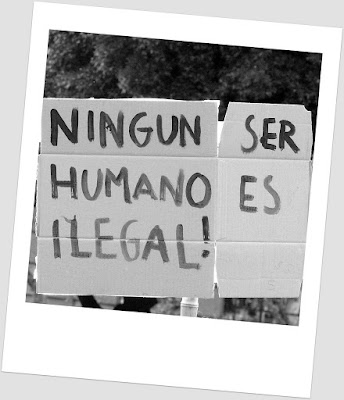 NINGUN SER
HUMANO ES
ILEGAL!